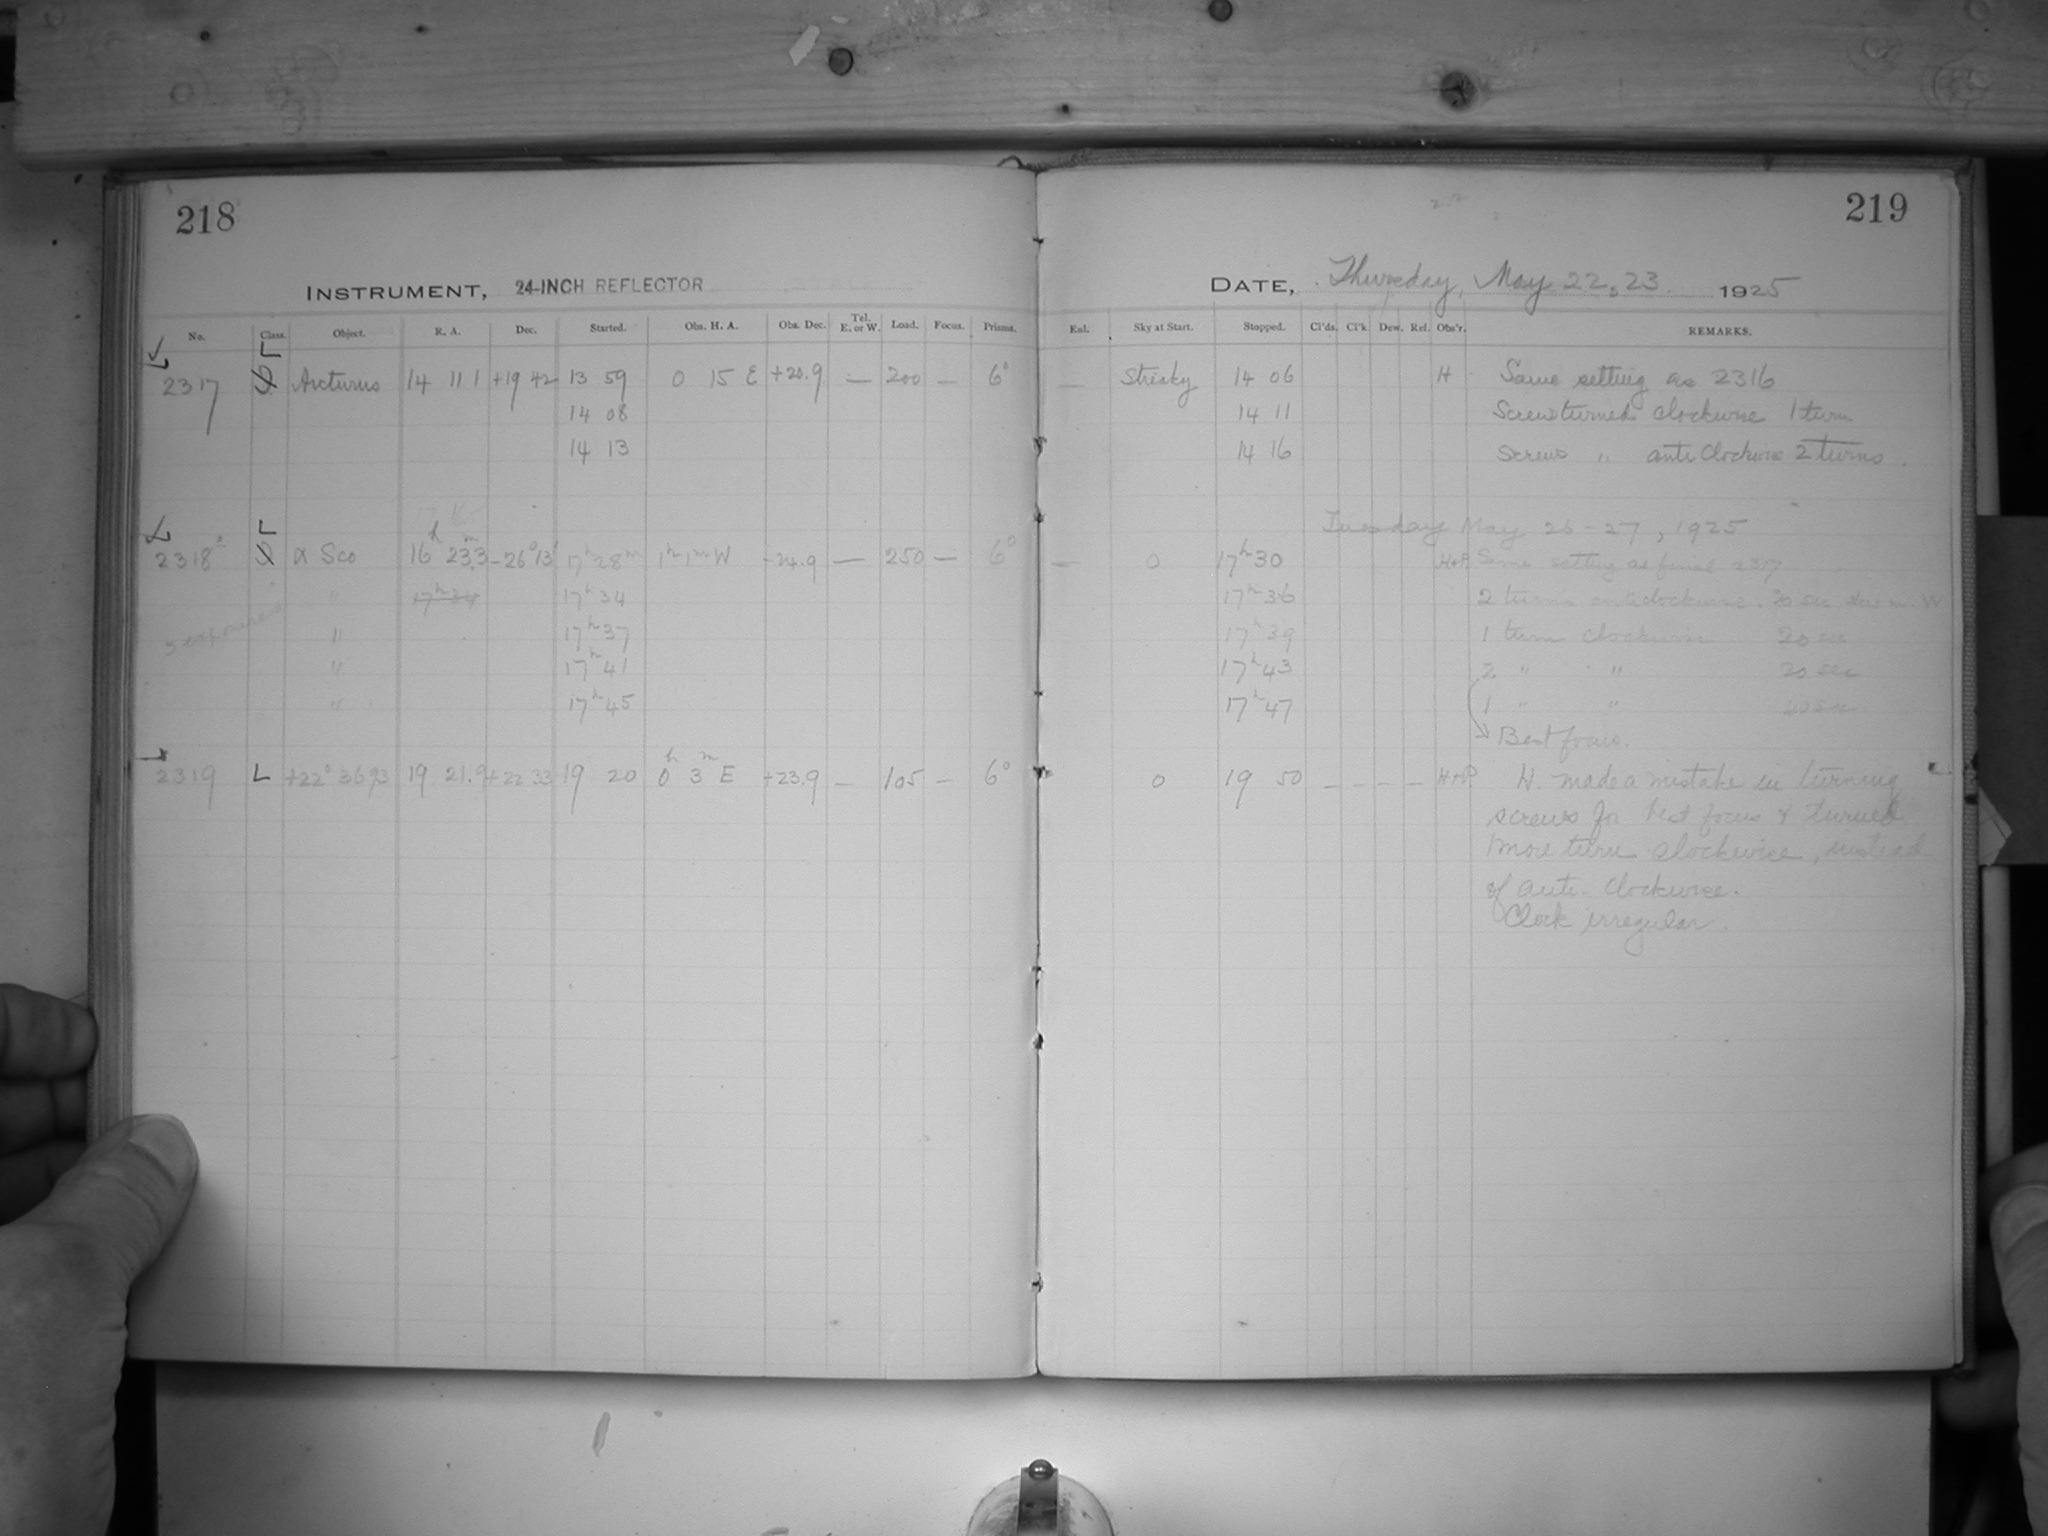 218
219
INSTRUMENT, 24-INCH REFLECTOR
DATE, Thursday, May 22, 23 1925
No. Class. Object. R. A. Dec. Started. Obs. H. A. Obs. Dec. Tel. E. or W. Load. Focus. Prisms. Enl. Sky at Start. Stopped. Cl'ds. Cl'k. Dew. Ref. Obs'r. REMARKS.
L
2317 Arcturus 14 11 1 +19 42 13 59 0 15 E +20.9 — 200 — 6° — Streaky 14 06 H Same setting as 2316
14 08 14 11 Screws turned clockwise 1 turn
14 13 14 16 Screws " anti clockwise 2 turns.
L Tuesday May 26-27, 1925
2318 α Sco 16h 23m.3 -26° 13' 17h 28m 1h 1m W -24.9 — 250 — 6° — 0 17h 30 H+P Same setting as final 2317
5 exposures " 17h 34 17h 34 17h 36 2 turns anticlockwise. 20 sec
" 17h 37 17h 39 1 turn clockwise 20 sec
" 17h 41 17h 43 2 " " 20 sec
" 17h 45 17h 47 1 " "
Best focus.
2319 L +22° 3693 19 21.9 +22 33 19 20 0h 3m E +23.9 — 105 — 6° 0 19 50 — — — — H+P H. made a mistake in turning
screws for best focus & turned
1 more turn clockwise, instead
of anti-clockwise.
Clock irregular.